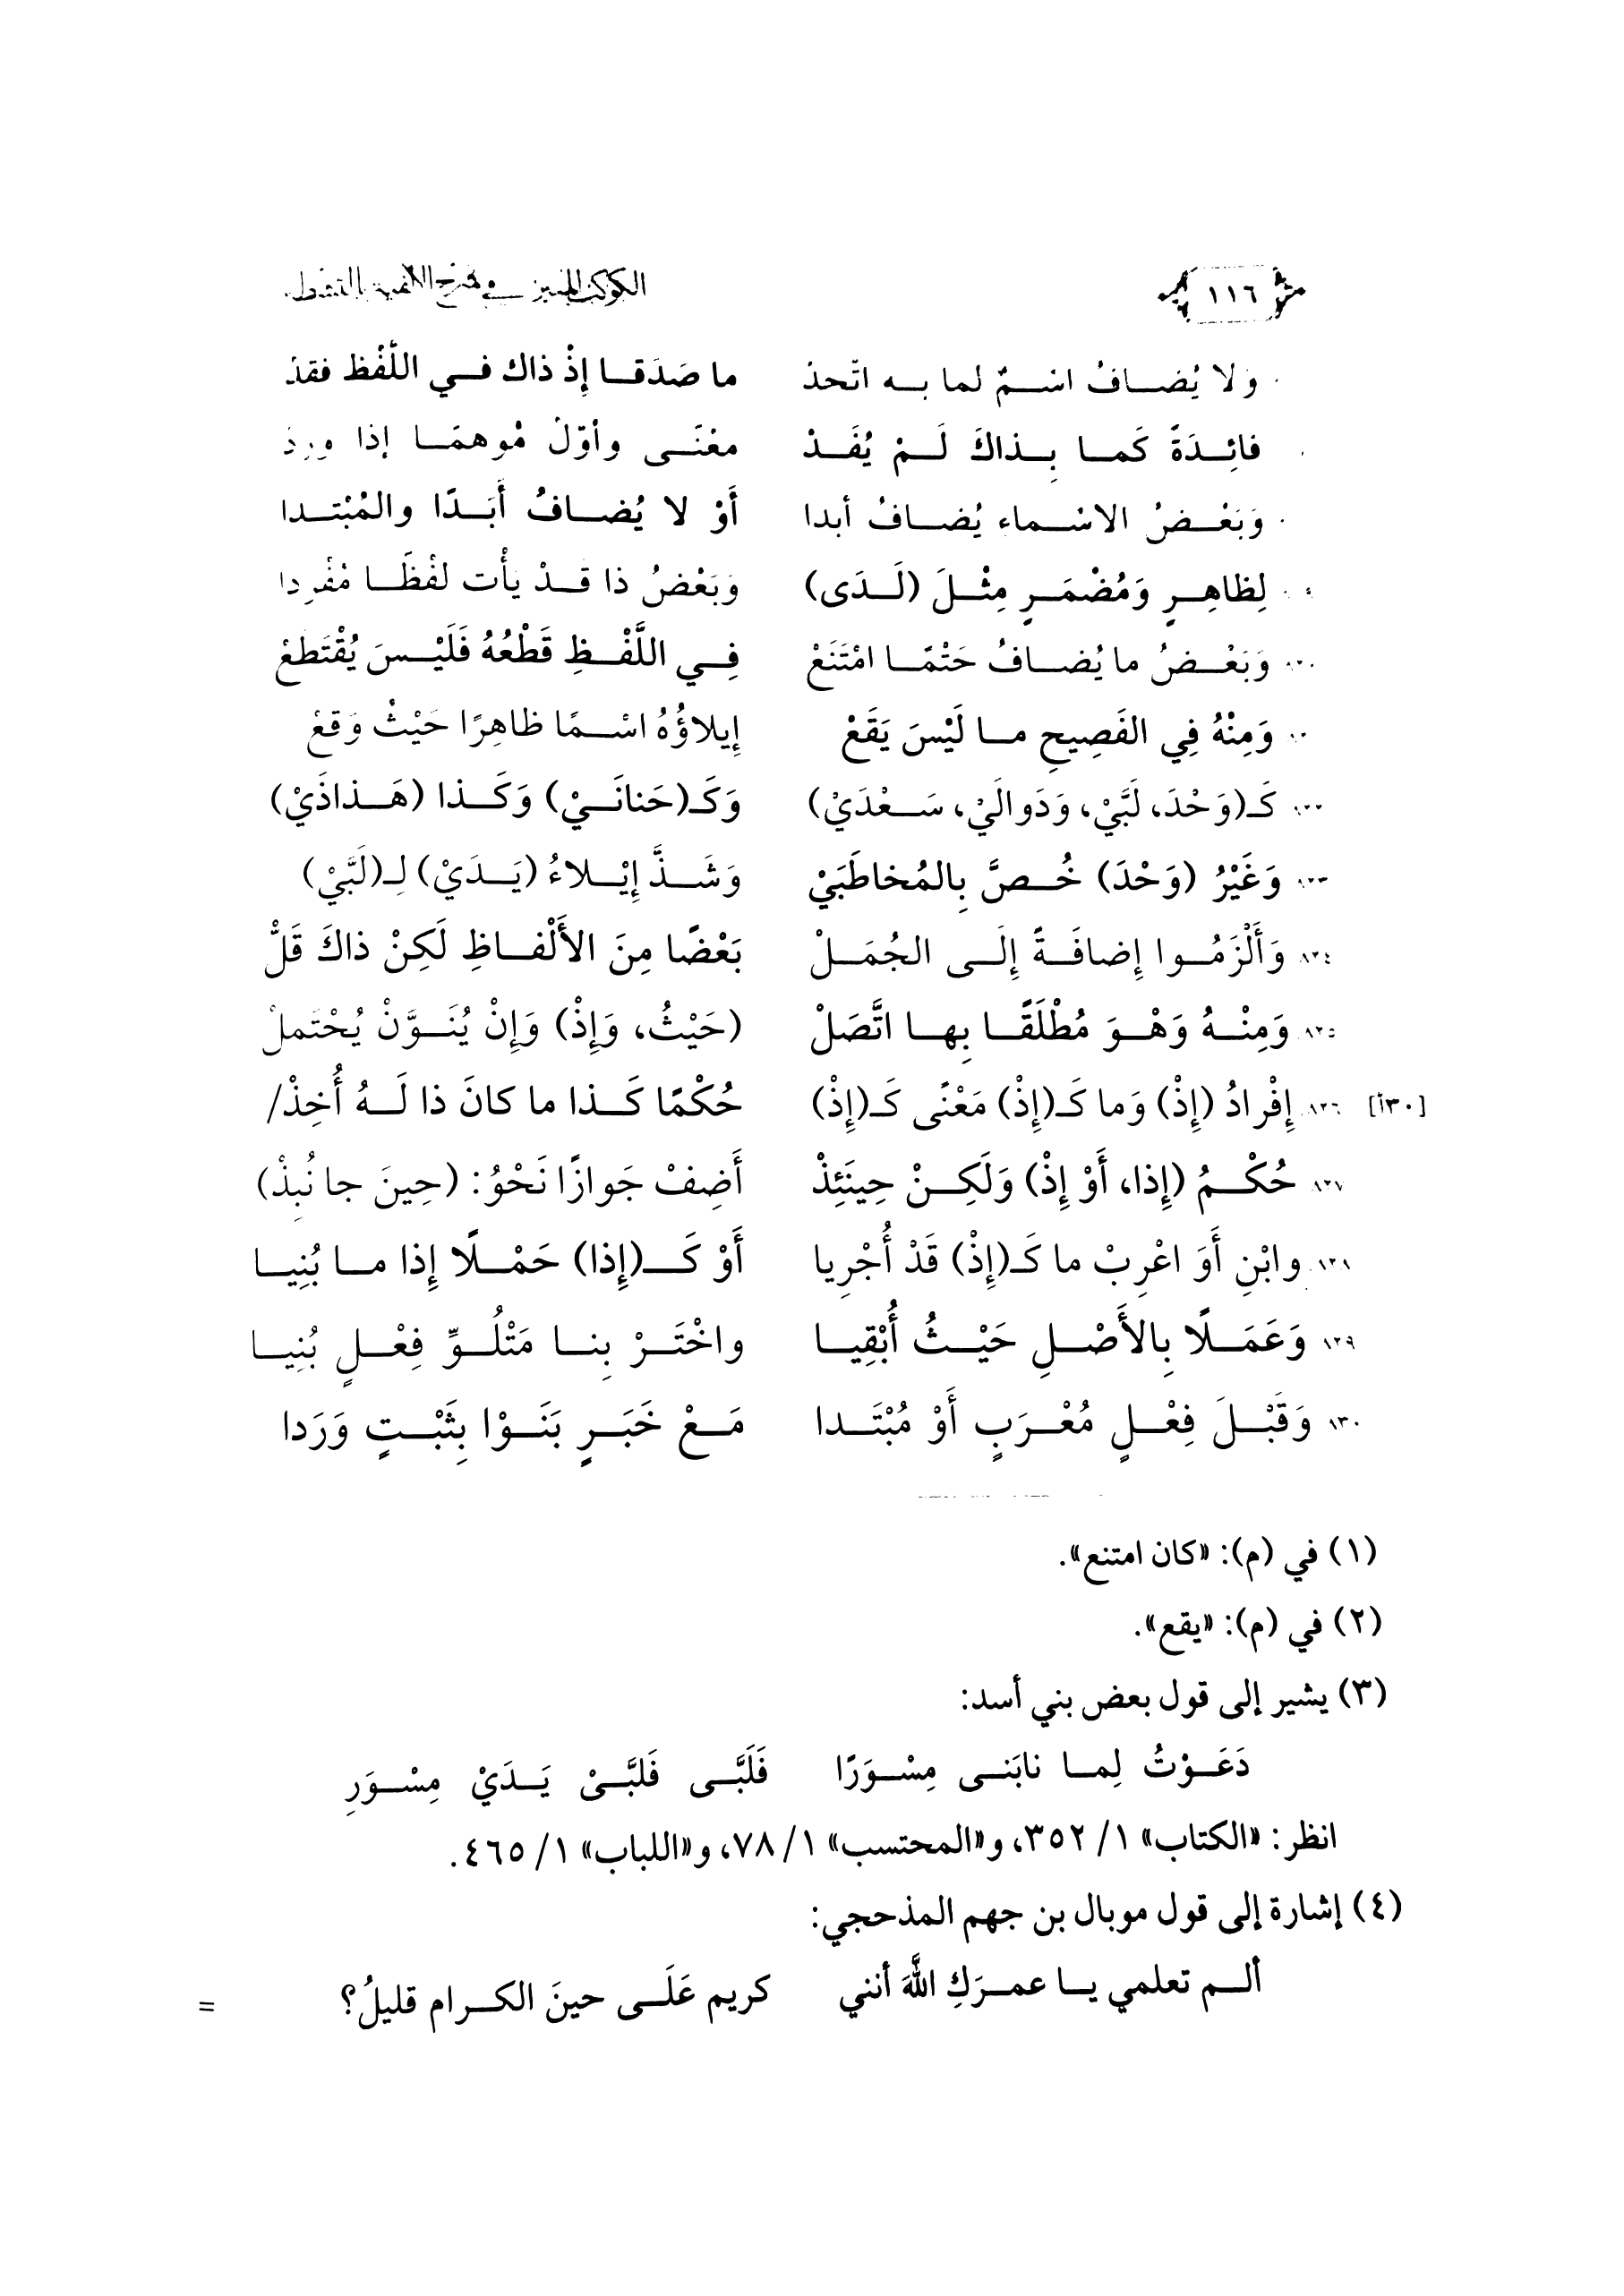 ١١٦ الكوكب المنير في شرح الألفية بالتشطير
وَلا يُضافُ اسْمٌ لما به اتّحدْ ما صَدَقا إِذْ ذاك في اللّفْظ فقدْ
فائِدَةً كَما بِذاكَ لَمْ يُفَدْ معْنَى وأوّلْ مُوهمًا إذا وردْ
وَبَعْضُ الاسْماء يُضافُ أبدا أَوْ لا يُضافُ أَبَدًا والمُبْتدا
لِظاهِرٍ وَمُضْمَرٍ مِثْلَ (لَدَى) وَبَعْضُ ذا قدْ يأْت لفْظًا مُفْردا
وَبَعْضُ ما يُضافُ حَتْمًا امْتَنَعْ فِي اللَّفْظِ قَطْعُهُ فَلَيْسَ يُقْتَطعْ
وَمِنْهُ فِي الفَصِيحِ ما لَيْسَ يَقَعْ إِيلاؤُهُ اسْمًا ظاهِرًا حَيْثُ وَقعْ
كَـ(وَحْدَ، لَبَّيْ، وَدَوالَيْ، سَعْدَيْ) وَكَـ(حَنانَيْ) وَكَذا (هَذاذَيْ)
وَغَيْرُ (وَحْدَ) خُصَّ بِالمُخاطَبَيْ وَشَذَّ إِيْلاءُ (يَدَيْ) لِـ(لَبَّيْ)
٨٢٤. وَأَلْزَمُوا إِضافَةً إِلَى الجُمَلْ بَعْضًا مِنَ الأَلْفاظِ لَكِنْ ذاكَ قَلّْ
٨٢٥. وَمِنْهُ وَهْوَ مُطْلَقًا بِها اتَّصَلْ (حَيْثُ، وَإِذْ) وَإِنْ يُنَوَّنْ يُحْتَملْ
[١٣٠أ] ٨٢٦. إِفْرادُ (إِذْ) وَما كَـ(إِذْ) مَعْنًى كَـ(إِذْ) حُكْمًا كَذا ما كانَ ذا لَهُ أُخِذْ/
٨٢٧. حُكْمُ (إِذا، أَوْ إِذْ) وَلَكِنْ حِينَئِذْ أَضِفْ جَوازًا نَحْوُ: (حِينَ جا نُبِذْ)
٨٢٨. وابْنِ أَوَ اعْرِبْ ما كَـ(إِذْ) قَدْ أُجْرِيا أَوْ كَـ(إِذا) حَمْلًا إِذا ما بُنِيا
٨٢٩. وَعَمَلًا بِالأَصْلِ حَيْثُ أُبْقِيا واخْتَرْ بِنا مَتْلُوِّ فِعْلٍ بُنِيا
٨٣٠. وَقَبْلَ فِعْلٍ مُعْرَبٍ أَوْ مُبْتَدا مَعْ خَبَرٍ بَنَوْا بِثَبْتٍ وَرَدا
(١) في (م): «كان امتنع».
(٢) في (م): «يقع».
(٣) يشير إلى قول بعض بني أسد:
دَعَوْتُ لِما نابَنى مِسْوَرًا فَلَبَّى فَلَبَّىْ يَدَيْ مِسْوَرِ
انظر: «الكتاب» ١/ ٣٥٢، و«المحتسب» ١/ ٧٨، و«اللباب» ١/ ٤٦٥.
(٤) إشارة إلى قول موبال بن جهم المذحجي:
ألم تعلمي يا عمرَكِ اللَّهَ أنني كريم عَلَى حينَ الكرام قليلُ؟
=